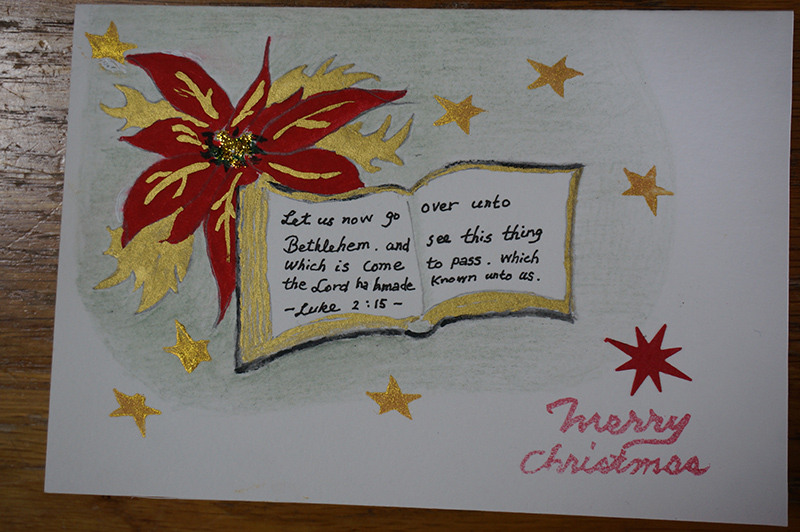 Let us now go over unto
Bethlehem. and see this thing
which is come to pass. which
the Lord ha hmade known unto us.
-Luke 2:15-
Merry
Christmas